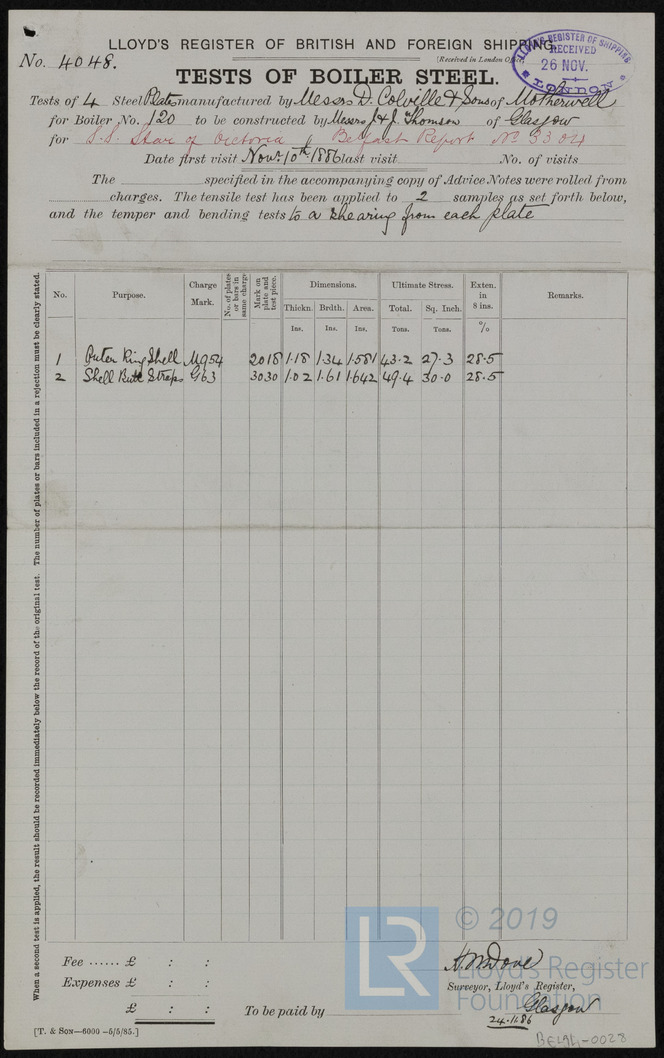 LLOYD'S REGISTER OF BRITISH AND FOREIGN SHIPPING.
No. 4048.
(Received in London Of
LLOYD'S REGISTER OF SHIPPING
RECEIVED
26 NOV.
LONDON
TESTS OF BOILER STEEL.
Tests of 4 Steel Plates manufactured by Messrs D. Colville & Sons of Motherwell
for Boiler No. 120 to be constructed by Messrs J. & J. Thomson of Glasgow
for S.S. Star of Victoria Belfast Report No 3304
Date first visit Novr 10th 1886 last visit No. of visits
The specified in the accompanying copy of Advice Notes were rolled from
charges. The tensile test has been applied to 2 samples as set forth below,
and the temper and bending tests to a shearing from each plate
No. Purpose. Charge Mark. No. of plates or bars in same charge Mark on plate and test piece. Dimensions. Ultimate Stress. Exten. in 8 ins. Remarks.
Thickn. Brdth. Area. Total. Sq. Inch.
Ins. Ins. Ins. Tons. Tons. %
1 Outer Ring Shell M954 2018 1.18 1.34 1.581 43.2 27.3 28.5
2 Shell Butt Straps G63 3030 1.02 1.61 1.642 49.4 30.0 28.5
When a second test is applied, the result should be recorded immediately below the record of the original test. The number of plates or bars included in a rejection must be clearly stated.
© 2019
LR
Lloyd's Register
Foundation
Fee ...... £ : :
Expenses £ : :
£ : :
To be paid by
Surveyor, Lloyd's Register,
Glasgow
24.11.86
[T. & SON—6000—5/5/85.]
BEL94-0028